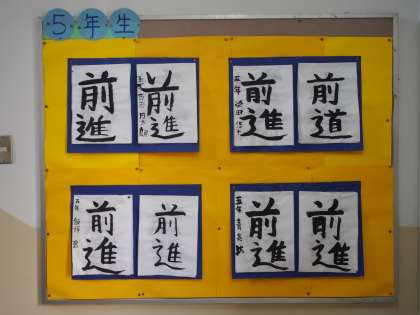 5年生
前進
前進
前進
前道
前進
前進
前進
前進
五年
五年
五年